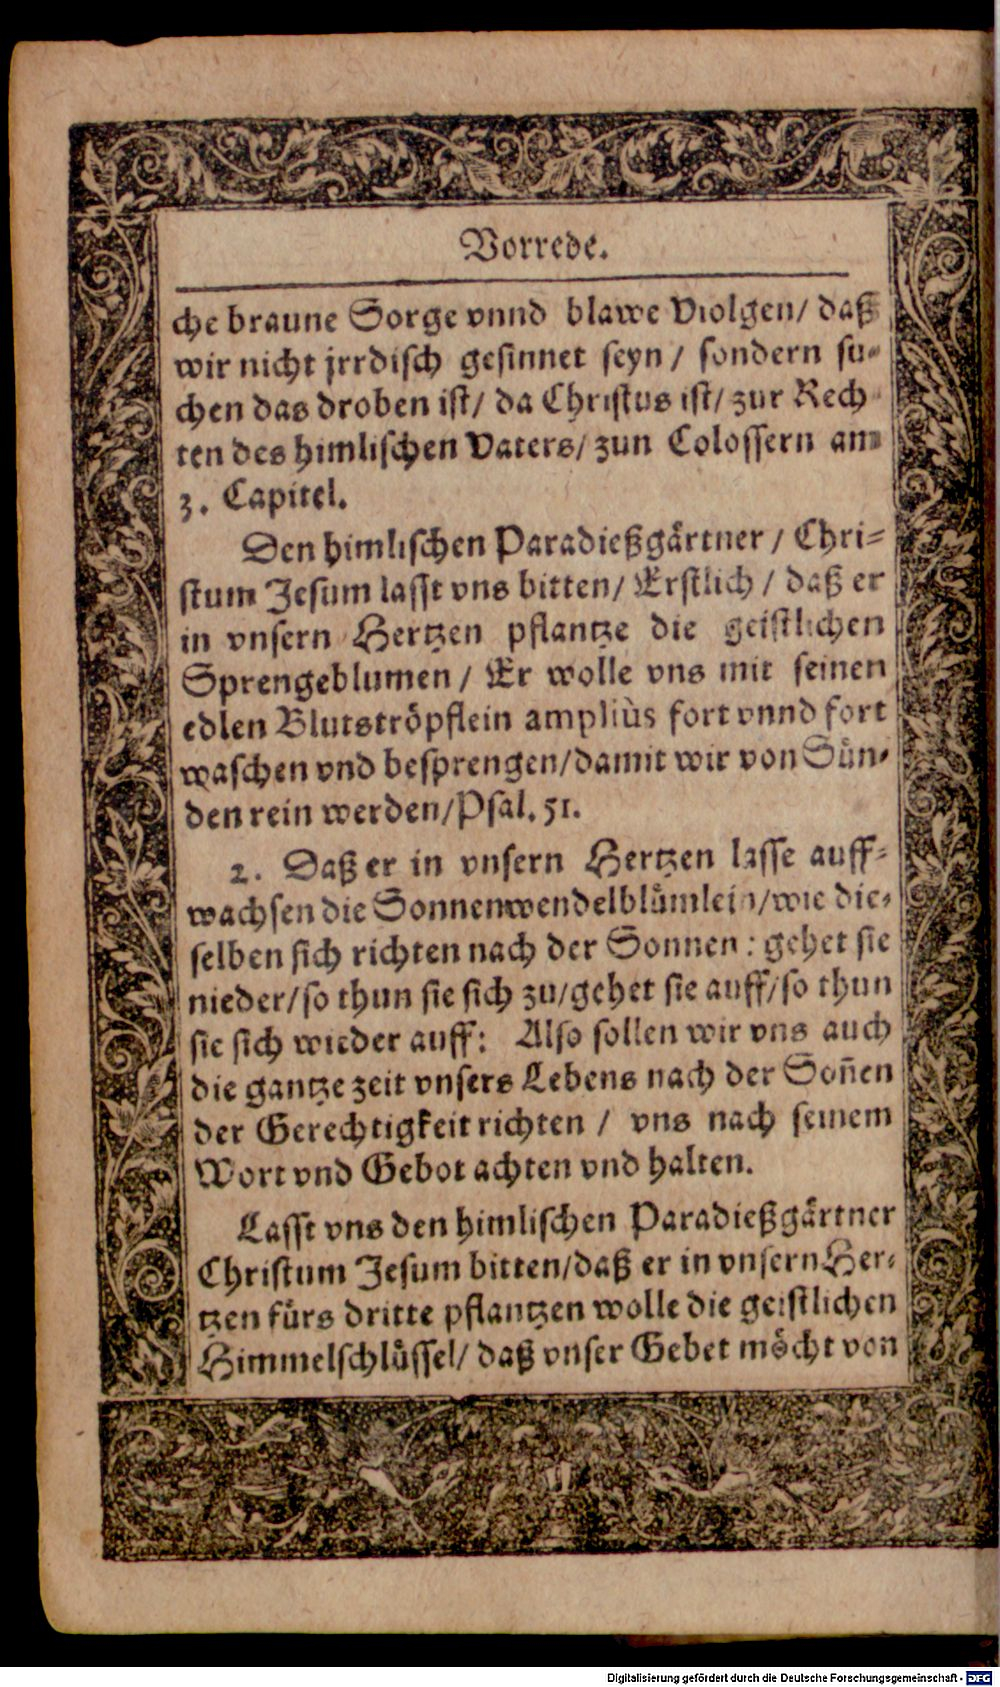 Vorrede.
che braune Sorge vnnd blawe Violgen/ daß
wir nicht jrrdisch gesinnet seyn / sondern su-
chen das droben ist/ da Christus ist/ zur Rech-
ten des himlischen Vaters/ zun Colossern am
3. Capitel.
Den himlischen Paradießgärtner / Chri-
stum Jesum lasst vns bitten/ Erstlich / daß er
in vnsern Hertzen pflantze die geistlichen
Sprengeblumen / Er wolle vns mit seinen
edlen Blutströpflein ampliùs fort vnnd fort
waschen vnd besprengen/damit wir von Sün-
den rein werden/Psal. 51.
2. Daß er in vnsern Hertzen lasse auff-
wachsen die Sonnenwendelblümlein/wie die-
selben sich richten nach der Sonnen: gehet sie
nieder/so thun sie sich zu/gehet sie auff/so thun
sie sich wieder auff: Also sollen wir vns auch
die gantze zeit vnsers Lebens nach der Soñen
der Gerechtigkeit richten / vns nach seinem
Wort vnd Gebot achten vnd halten.
Lasst vns den himlischen Paradießgärtner
Christum Jesum bitten/daß er in vnsern Her-
tzen fürs dritte pflantzen wolle die geistlichen
Himmelschlüssel/ daß vnser Gebet möcht von
Digitalisierung gefördert durch die Deutsche Forschungsgemeinschaft - DFG